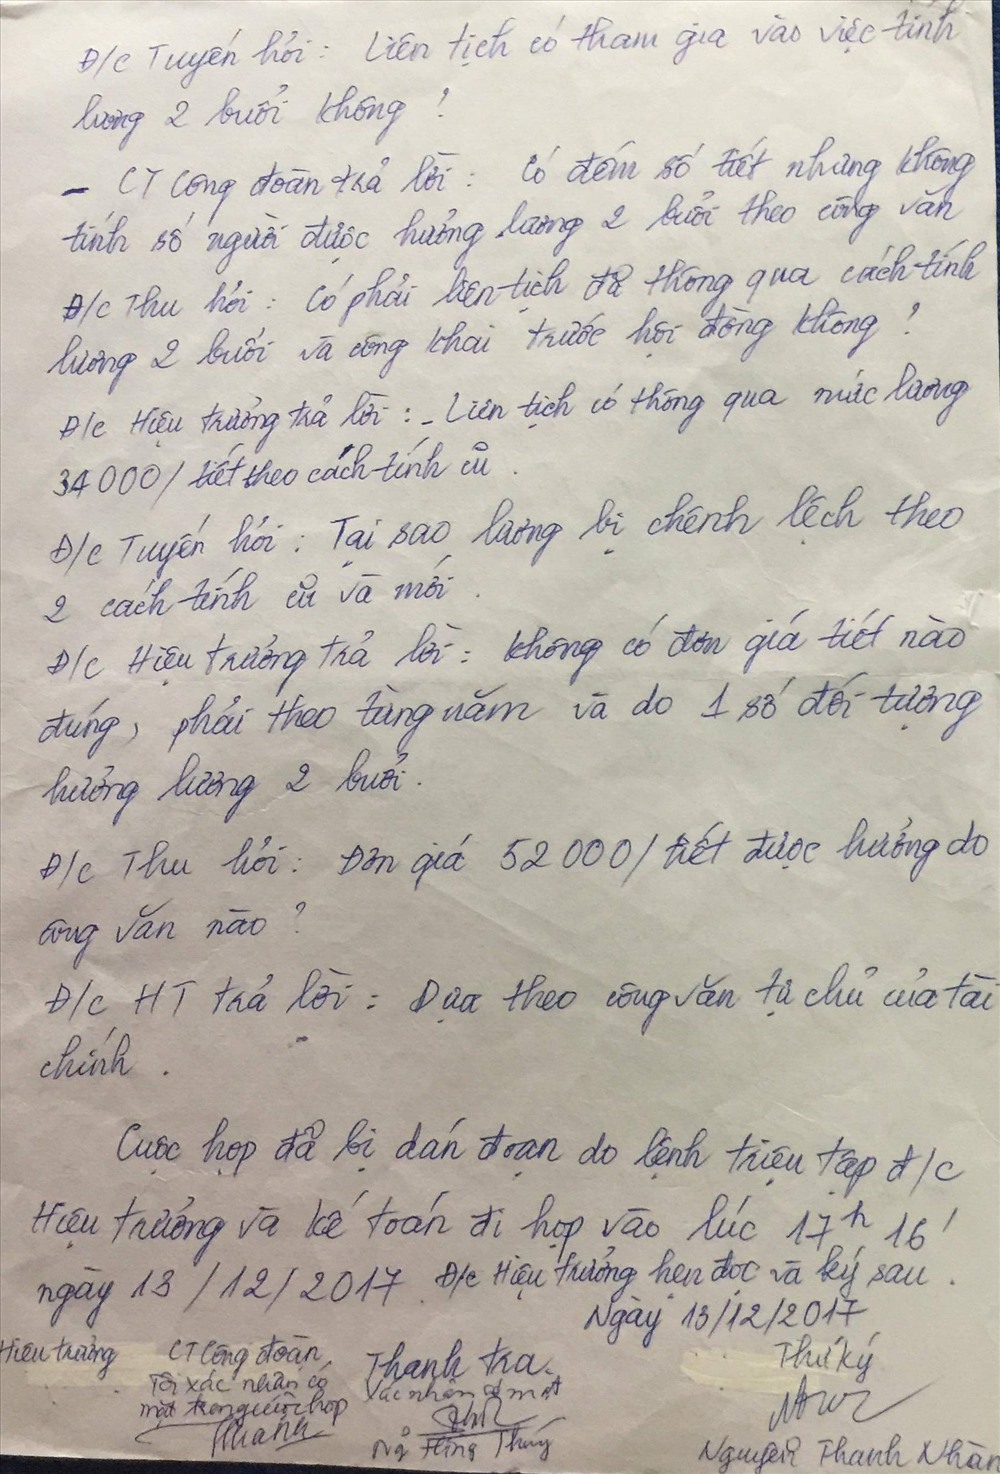 Đ/c Tuyến hỏi : Liên tịch có tham gia vào việc tính
lương 2 buổi không ?
- CT Công đoàn trả lời : Có đếm số tiết nhưng không
tính số người được hưởng lương 2 buổi theo công văn
Đ/c Thu hỏi : Có phải liên tịch đã thông qua cách tính
lương 2 buổi và công khai trước hội đồng không ?
Đ/c Hiệu trưởng trả lời : - Liên tịch có thông qua mức lương
34000/ tiết theo cách tính cũ .
Đ/c Tuyến hỏi : Tại sao lương bị chênh lệch theo
2 cách tính cũ và mới .
Đ/c Hiệu trưởng trả lời : không có đơn giá tiết nào
đúng, phải theo từng năm và do 1 số đối tượng
hưởng lương 2 buổi .
Đ/c Thu hỏi : Đơn giá 52000/ tiết được hưởng do
công văn nào ?
Đ/c HT trả lời : Dựa theo công văn tự chủ của tài
chính .
Cuộc họp đã bị dán đoạn do lệnh triệu tập đ/c
Hiệu trưởng và kế toán đi họp vào lúc 17h 16'
ngày 13/12/2017. Đ/c Hiệu trưởng hẹn đọc và ký sau .
Ngày 13/12/2017
Hiệu trưởng CT Công đoàn Thanh tra. Thư ký
Tôi xác nhận có Xác nhận có mặt
mặt trong cuộc họp
Thanh
Ng Hồng Thúy Nguyễn Thanh Nhàn